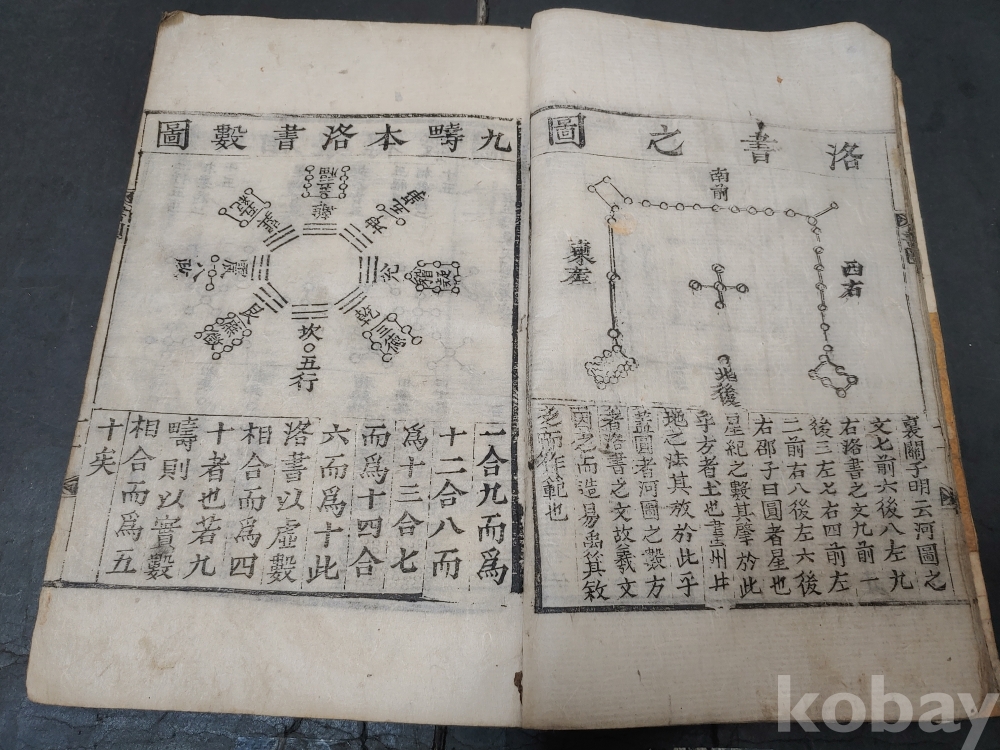 洛書之圖
南前
西右
東左
北後
襄關子明云河圖之
文七前六後八左九
右洛書之文九前一
後三左七右四前左
二前右八後左六後
右邵子曰圓者星也
星紀之數其肇於此
乎方者土也畫州井
地之法其放於此乎
蓋圓者河圖之數方
者洛書之文故羲文
因之而造易禹箕敘
之而作範也
九疇本洛書數圖
離 五福
坤 五事
兌 稽疑
乾 三德
坎 五行
艮 庶徵
震 八政
巽 五紀
一合九而爲
十二合八而
爲十三合七
而爲十四合
六而爲十此
洛書以虛數
相合而爲四
十者也若九
疇則以實數
相合而爲五
十矣
kobay